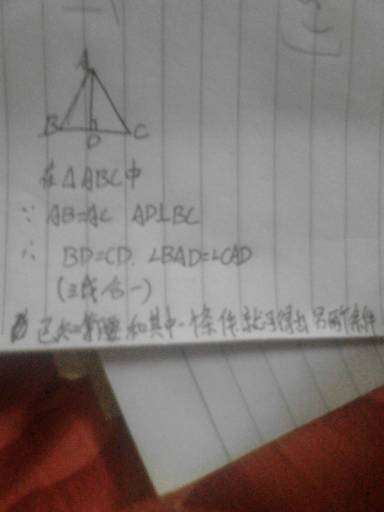 A
B D C
在△ABC中
∵ AB=AC AD⊥BC
∴ BD=CD. ∠BAD=∠CAD
(三线合一)
已知等腰和其中一个条件就可得出另两个条件